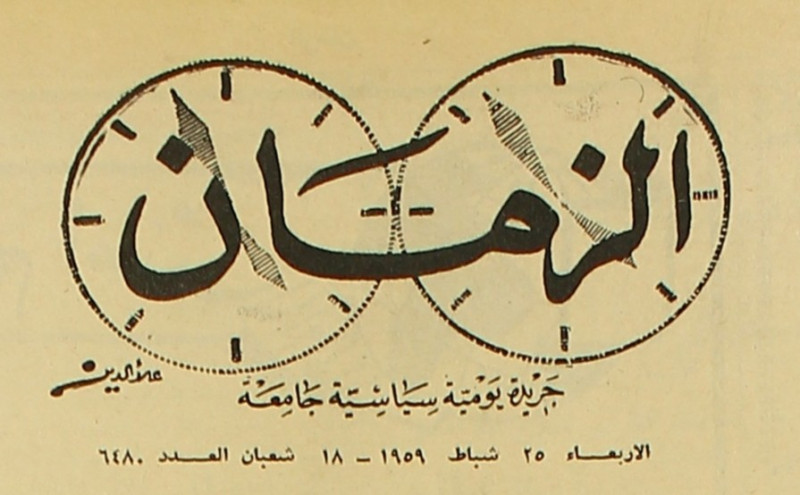 الزمان
علاءالدين
جريدة يومية سياسية جامعة
الاربعاء ٢٥ شباط ١٩٥٩ - ١٨ شعبان العدد ٦٤٨٠